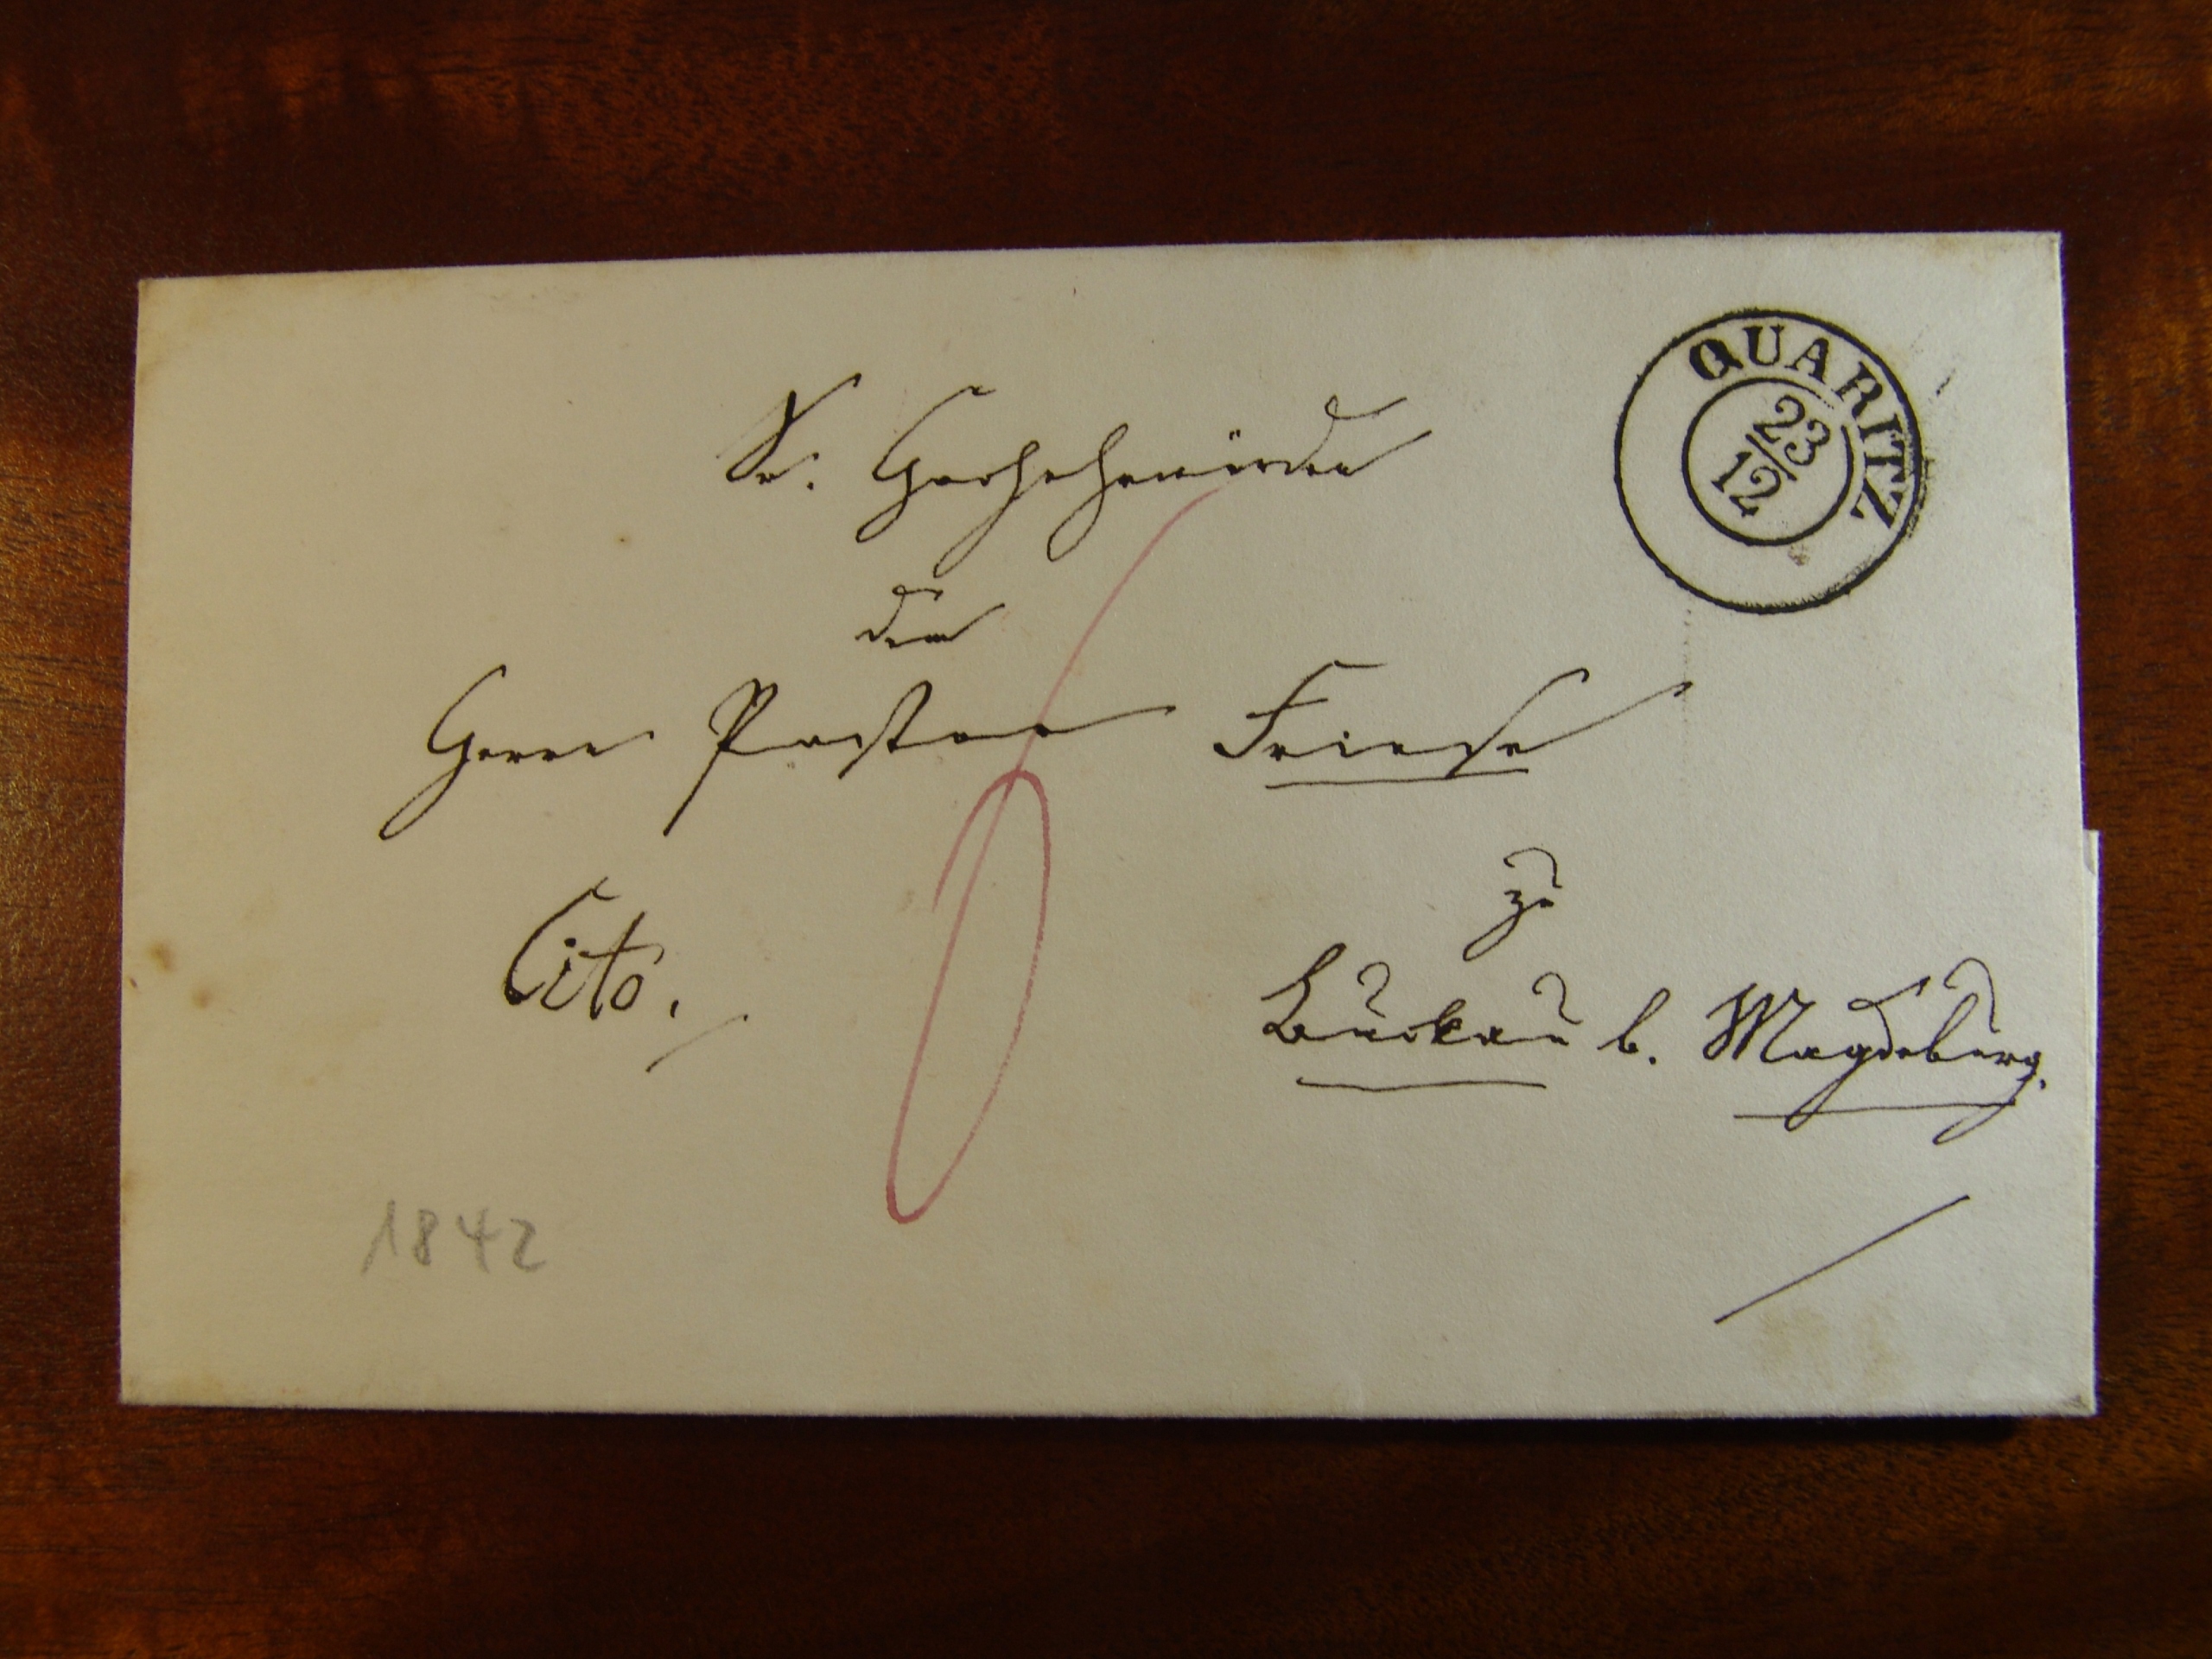 QUARITZ
23
12
Sr. Hochehrwürden
dem
Herrn Pastor Friese
zu
Cito.
Buckau b. Magdeburg.
1842